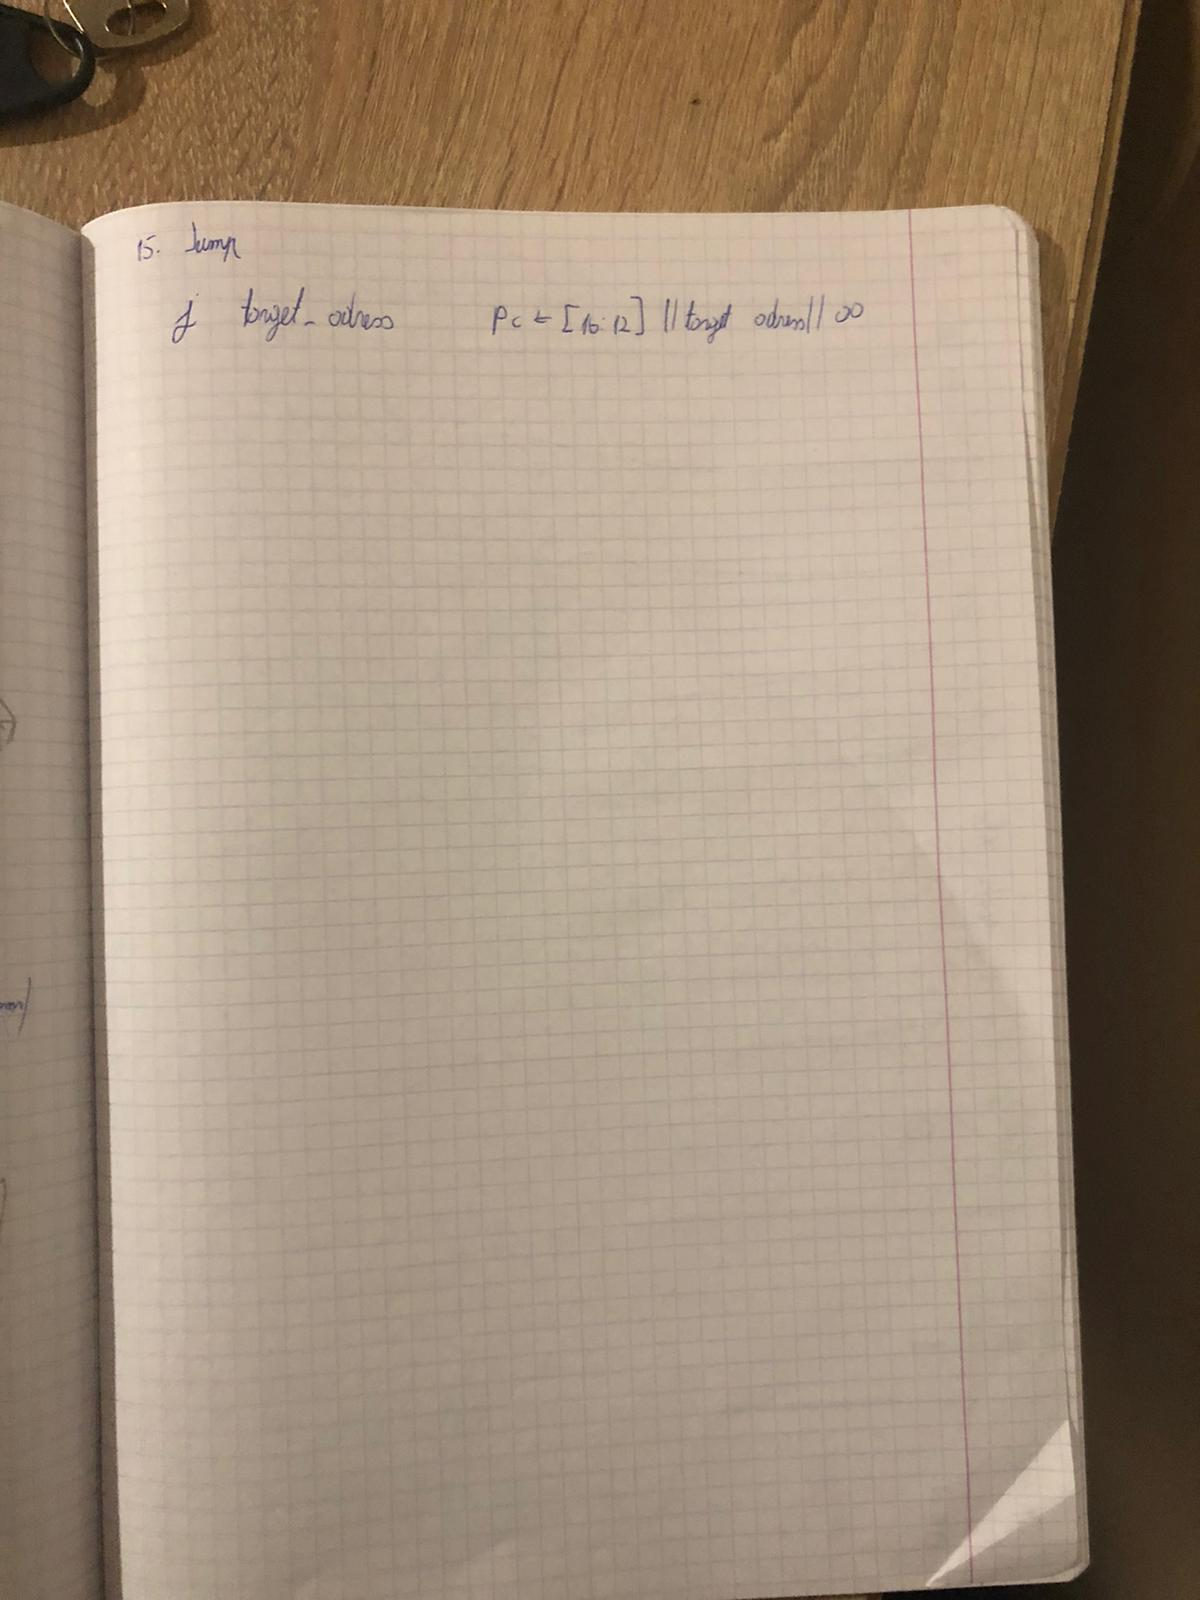 15. Jump
j target_adress PC ← [16:12] || target adress || 00